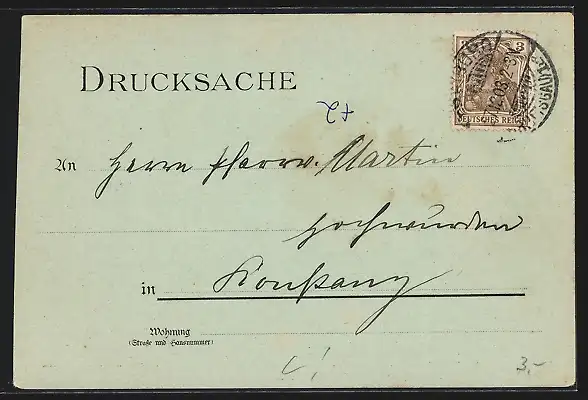 3
DEUTSCHES REICH
DRUCKSACHE
+2
An Herrn Pfarrv. Martin
Hochwürden
in
Wohnung
(Straße und Hausnummer)
3,-